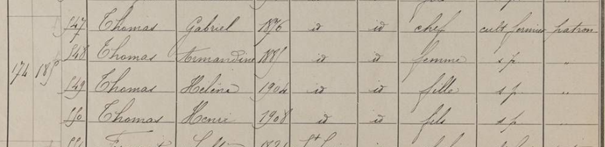 547 Thomas Gabriel 1876 id id chef cult fermier patron
548 Thomas Armandine id id femme s p "
174 549 Thomas Hélène 1904 id id fille s p "
550 Thomas Henri 1908 id id fils s p "